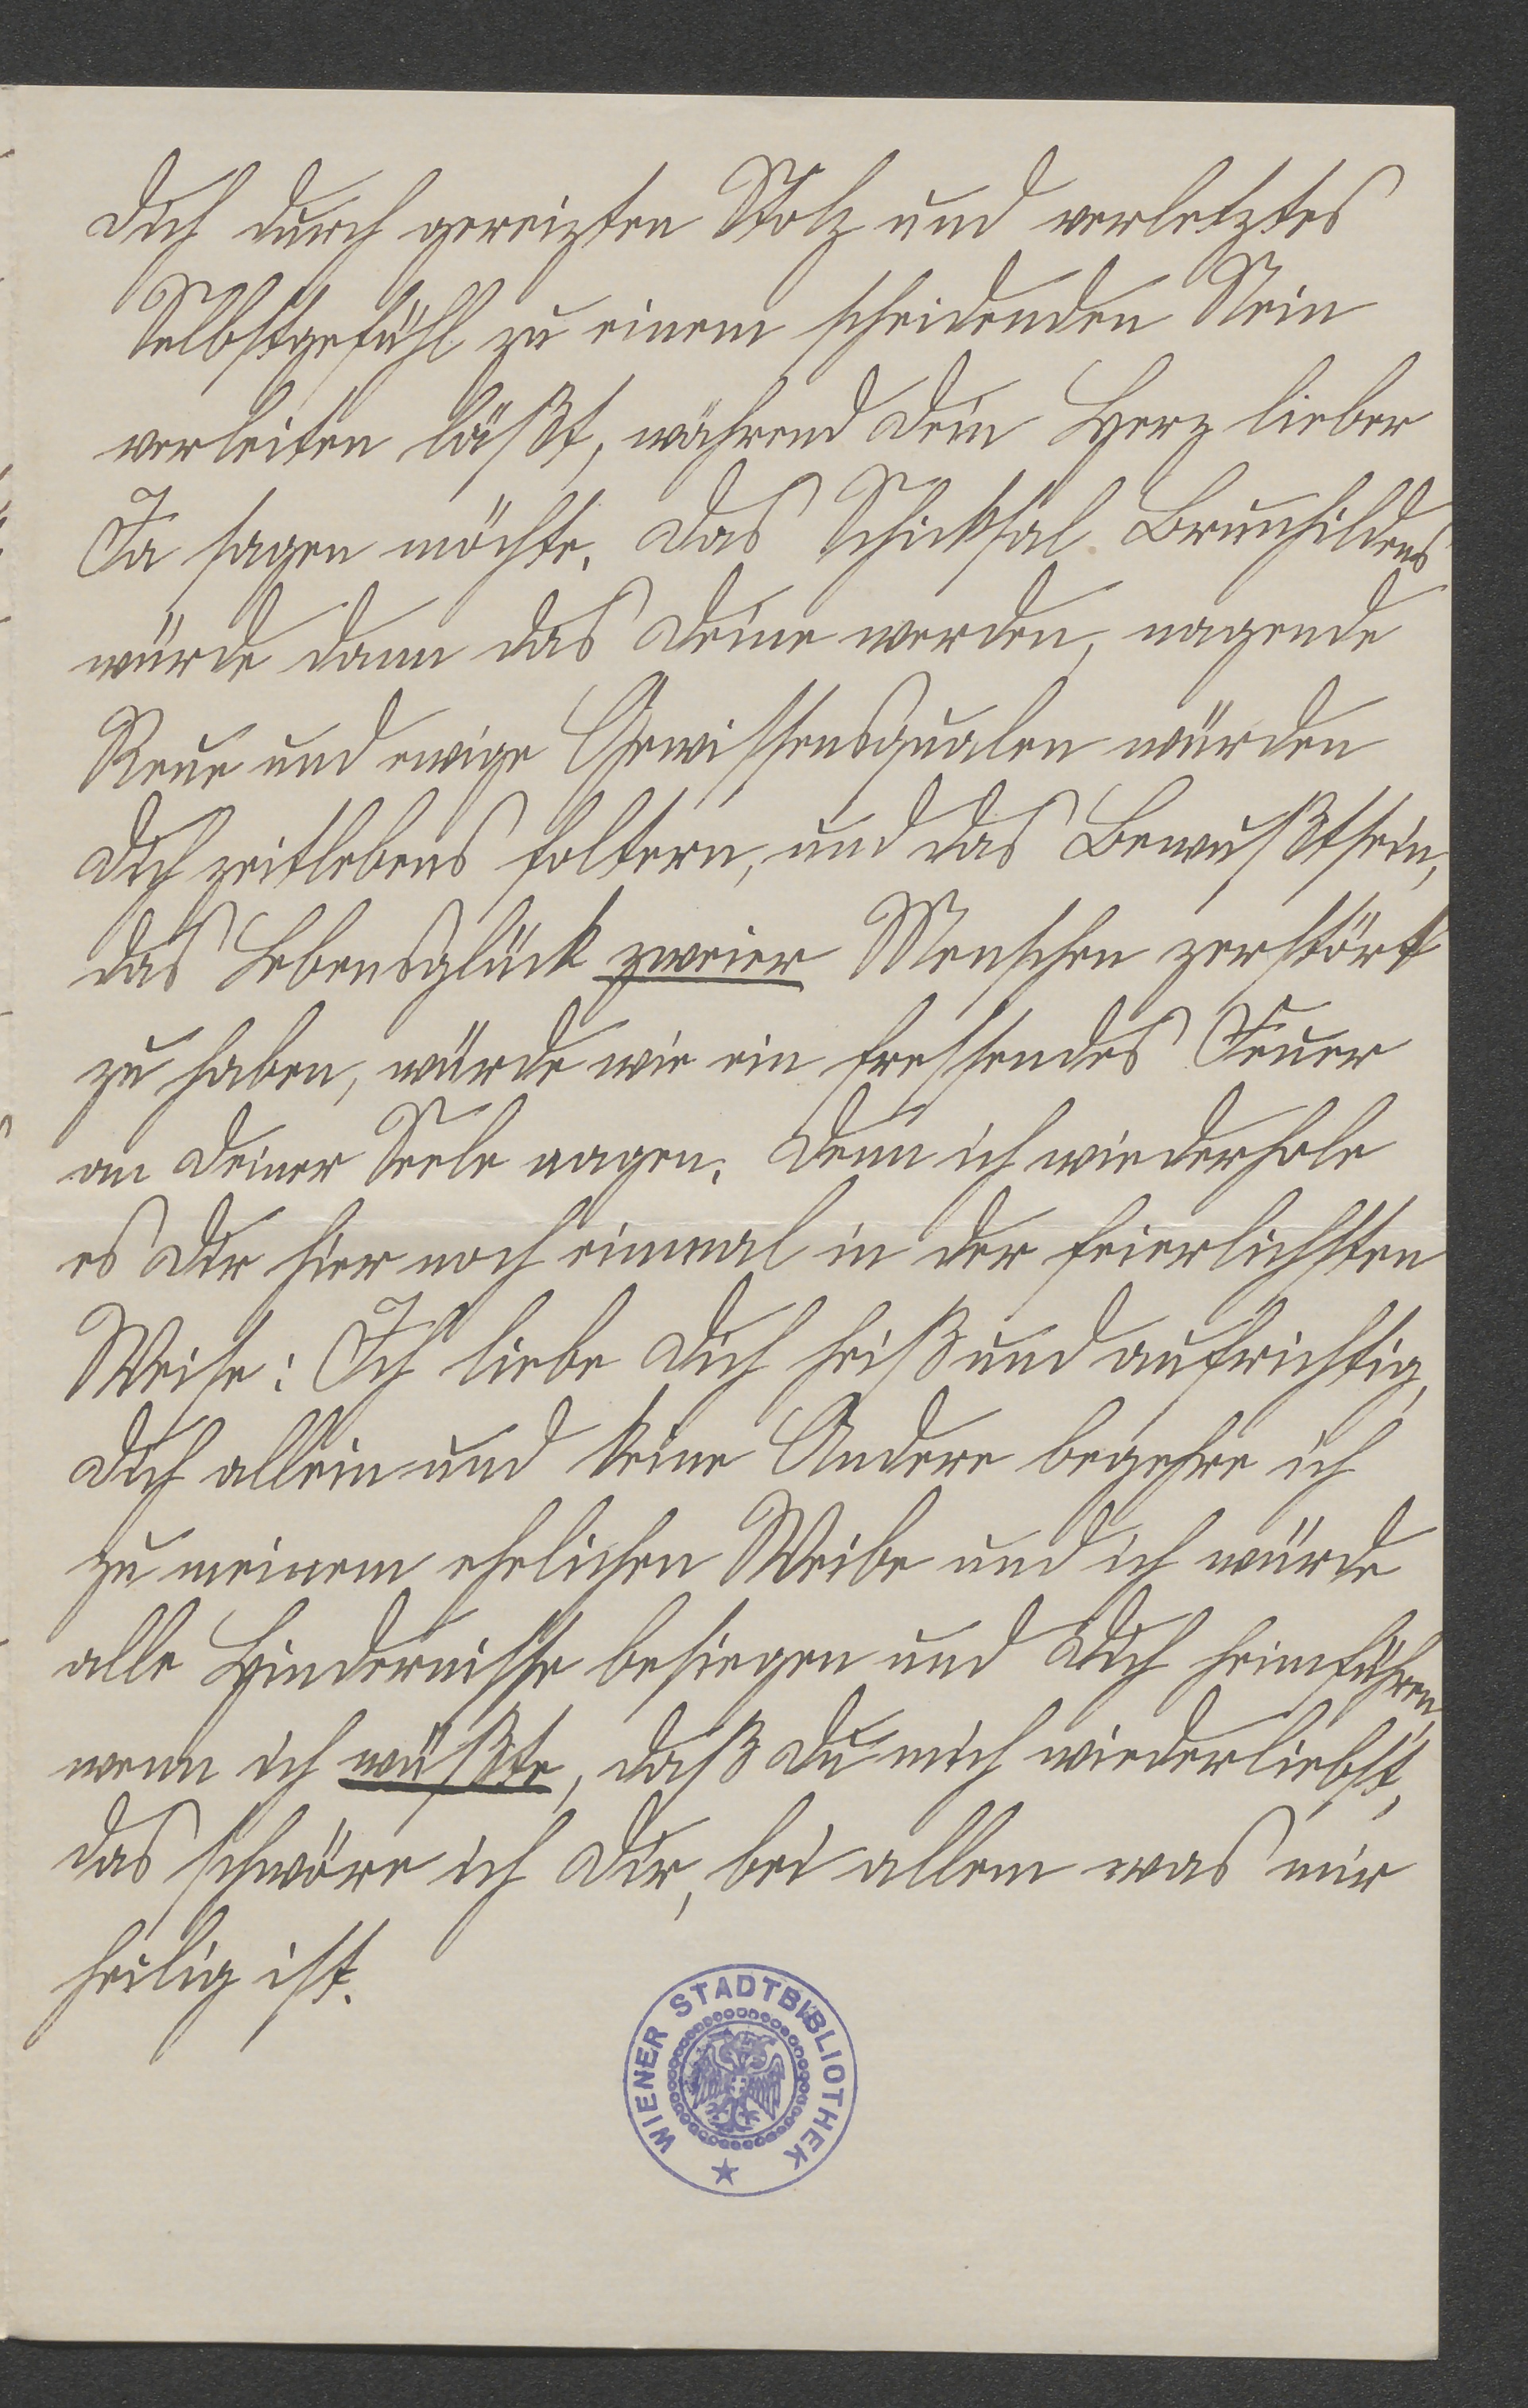 Dich durch gereizten Stolz und verletztes
Selbstgefühl zu einem scheidenden Nein
verleiten läßt, während Dein Herz lieber
Ja sagen möchte. Das Schicksal Brunhildens
würde dann das Deine werden, nagende
Reue und ewige Gewissensqualen würden
Dich zeitlebens foltern, und das Bewußtsein,
das Lebensglück zweier Menschen zerstört
zu haben, würde wie ein fressendes Feuer
an Deiner Seele nagen. Denn ich wiederhole
es Dir hier noch einmal in der feierlichsten
Weise: Ich liebe Dich heiß und aufrichtig,
Dich allein und keine Andere begehre ich
zu meinem ehelichen Weibe und ich würde
alle Hindernisse besiegen und Dich heimführen,
wenn ich wüßte, daß Du mich wiederliebst,
das schwöre ich Dir, bei allem was mir
heilig ist.
WIENER STADTBIBLIOTHEK